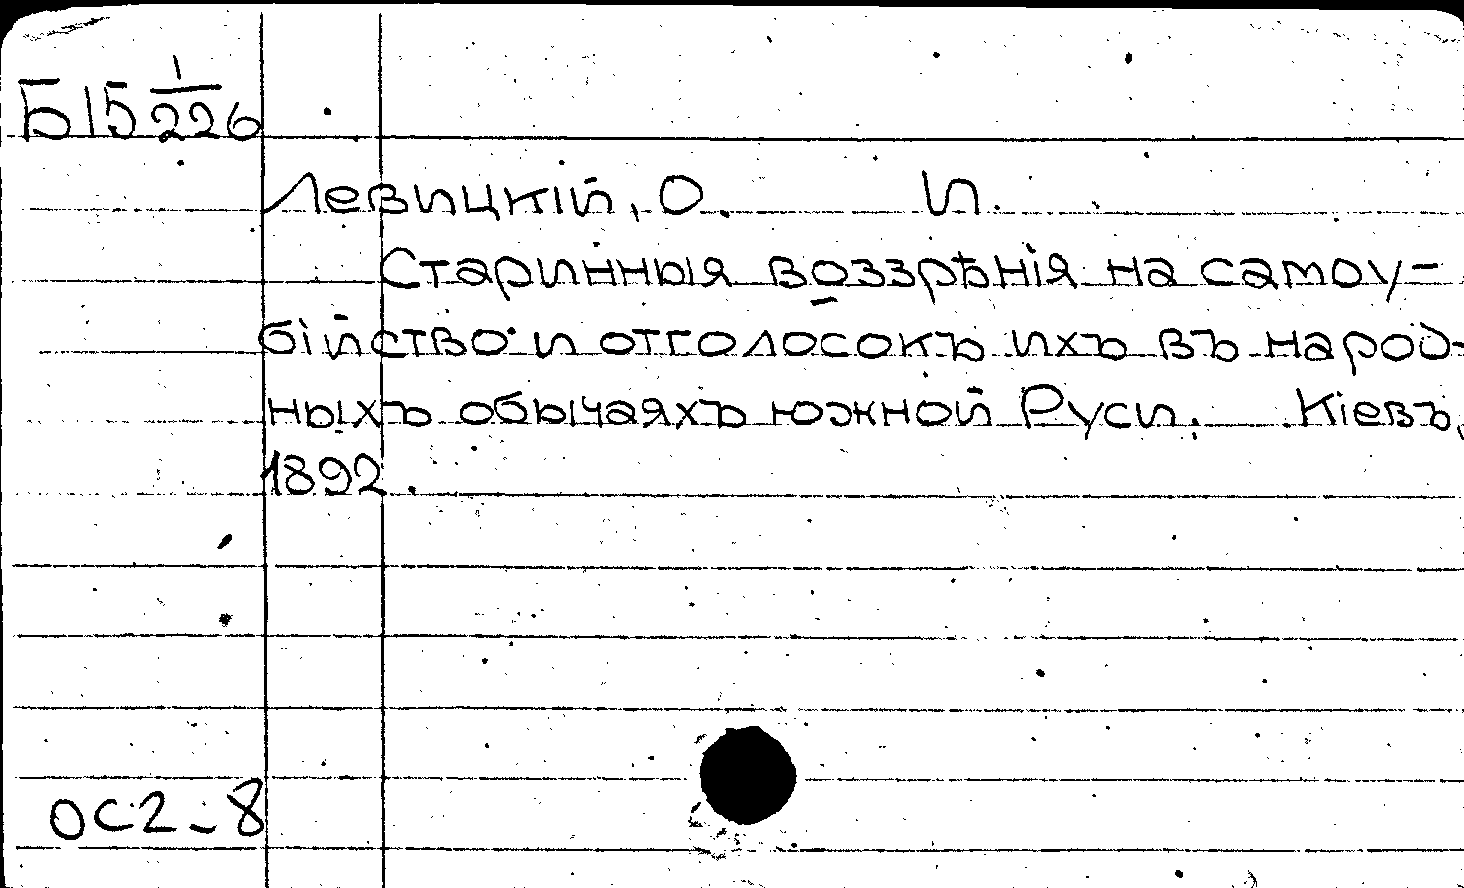 Б15 1/226
Левицкій, О. И.
Старинныя воззрѣнія на самоу-
бійство и отголосокъ ихъ въ народ-
ныхъ обычаяхъ южной Руси. Кіевъ,
1892.
ОС2-8